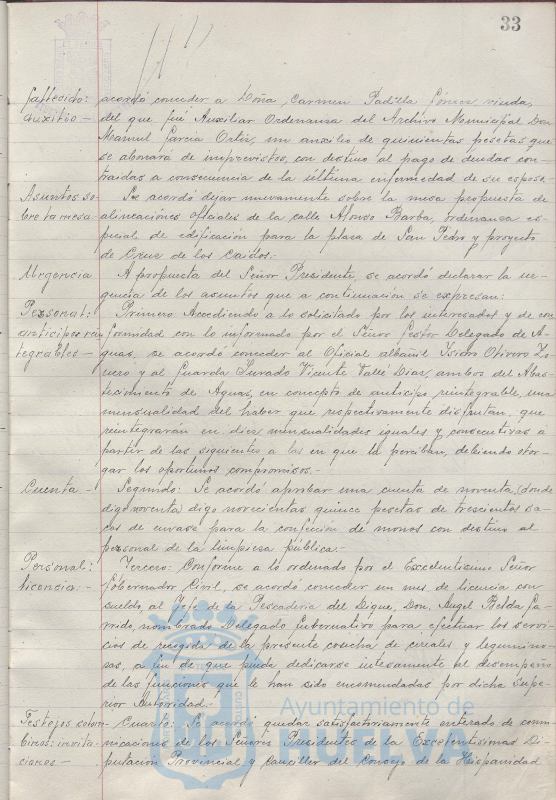 33
fallecido: acordó conceder a Doña Carmen Padilla Gómez viuda,
auxilio - del que fué Auxiliar Ordenanza del Archivo Municipal Don
Manuel García Ortiz, un auxilio de quinientas pesetas que
se abonará de imprevistos, con destino al pago de deudas con
traidas a consecuencia de la última enfermedad de su esposo.
Asuntos so- Se acordó dejar nuevamente sobre la mesa propuesta de
bre la mesa alineaciones oficiales de la calle Alonso Barba, ordenanza es
pecial de edificación para la plaza de San Pedro y proyecto
de Cruz de los Caidos.
Urgencia A propuesta del Señor Presidente, se acordó declarar la ur-
gencia de los asuntos que a continuación se expresan:
Personal: Primero: Accediendo a lo solicitado por los interesados y de con
anticipos rein formidad con lo informado por el Señor Gestor Delegado de A-
tegrables - guas, se acordó conceder al Oficial albañil Isidro Olivero
y al Guarda Jurado Vicente Vallé Diaz, ambos del Abas-
tecimiento de Aguas, en concepto de anticipo reintegrable, una
mensualidad del haber que respectivamente disfrutan, que
reintegrarán en diez mensualidades iguales y consecutivas a
partir de las siguientes a las en que la perciban, debiendo otor-
gar los oportunos compromisos.-
Cuenta - Segundo: Se acordó aprobar una cuenta de noventa,
digo noventa digo novecientas quince pesetas de trescientos sa-
cos de envase para la confección de monos con destino al
personal de la limpieza pública:-
Personal: Tercero: Conforme a lo ordenado por el Excelentísimo Señor
licencia: - Gobernador Civil, se acordó conceder un mes de licencia con
sueldo, al Jefe de la Pescadería del Dique, Don Angel Belda Ga-
rrido, nombrado Delegado Gubernativo para efectuar los servi-
cios de recogida de la presente cosecha de cereales y legumino-
sas, a fin de que pueda dedicarse intesamente al desempeño
de las funciones que le han sido encomendadas por dicha Supe-
rior Autoridad.
Festejos colom- Cuarto: Se acordó quedar satisfactoriamente enterado de comu-
binos: invita- nicaciones de los Señores Presidentes de la Excelentísimas Di-
ciones - putación Provincial y Canciller del Consejo de la Hispanidad
Ayuntamiento de
HUELVA